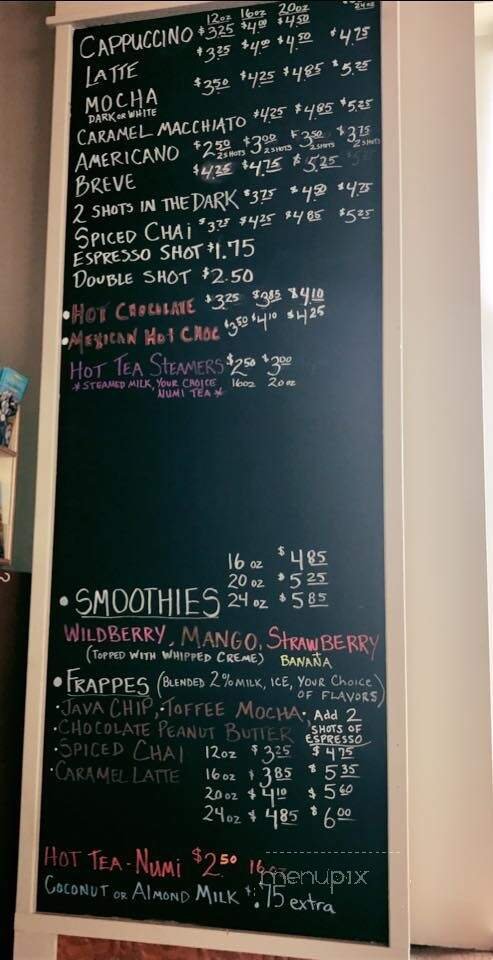 12oz 16oz 20oz 24oz
CAPPUCCINO $3.25 $4.00 $4.50
LATTE $3.25 $4.00 $4.50 $4.75
MOCHA $3.50 $4.25 $4.85 $5.25
DARK OR WHITE
CARAMEL MACCHIATO $4.25 $4.85 $5.25
AMERICANO $2.50 $3.00 $3.50 $3.75
2 SHOTS 2 SHOTS 2 SHOTS 2 SHOTS
BREVE $4.25 $4.75 $5.25
2 SHOTS IN THE DARK $3.75 $4.50 $4.75
SPICED CHAI $3.75 $4.25 $4.85 $5.25
ESPRESSO SHOT $1.75
DOUBLE SHOT $2.50
• HOT CHOCOLATE $3.25 $3.85 $4.10
• MEXICAN HOT CHOC $3.50 $4.10 $4.25
HOT TEA STEAMERS $2.50 $3.00
* STEAMED MILK, YOUR CHOICE 16oz 20oz
NUMI TEA *
16 oz $4.85
20 oz $5.25
• SMOOTHIES 24 oz $5.85
WILDBERRY, MANGO, STRAWBERRY
(TOPPED WITH WHIPPED CREME) + BANANA
• FRAPPES (BLENDED 2% MILK, ICE, YOUR CHOICE
OF FLAVORS)
• JAVA CHIP, • TOFFEE MOCHA • Add 2
• CHOCOLATE PEANUT BUTTER SHOTS OF
ESPRESSO
• SPICED CHAI 12oz $3.25 $4.75
• CARAMEL LATTE 16oz $3.85 $5.35
20oz $4.10 $5.60
24oz $4.85 $6.00
HOT TEA - NUMI $2.50 16oz
menupix
COCONUT OR ALMOND MILK $.75 extra